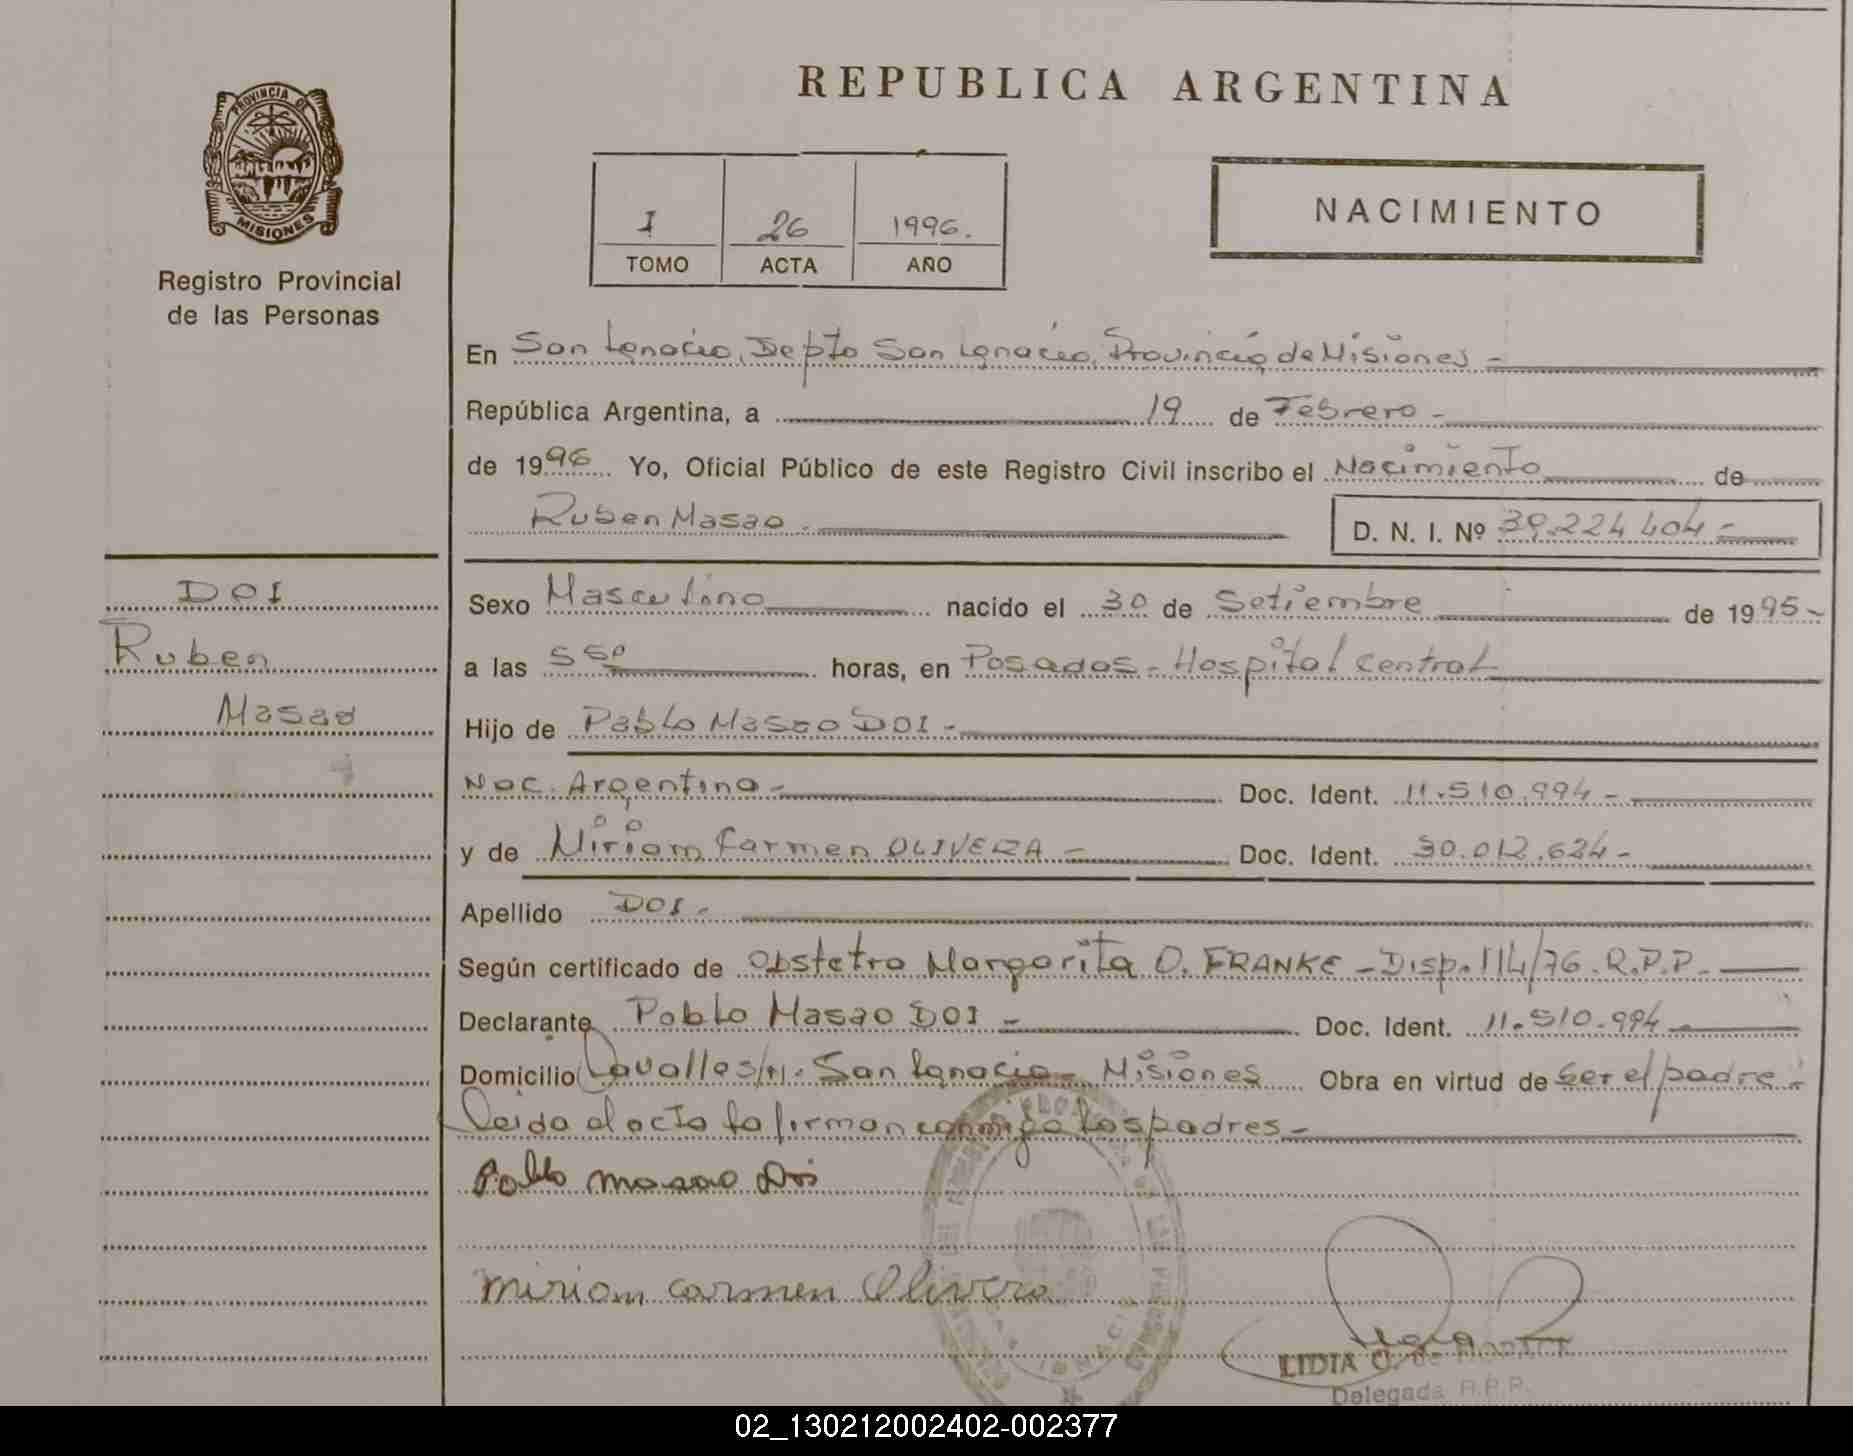 PROVINCIA DE
MISIONES
Registro Provincial
de las Personas
REPUBLICA ARGENTINA
I 26 1996.
TOMO ACTA AÑO
NACIMIENTO
En San Ignacio, Depto San Ignacio, Provincia de Misiones -
República Argentina, a 19 de Febrero -
de 1996 Yo, Oficial Público de este Registro Civil inscribo el Nacimiento de
Ruben Masao. D. N. I. Nº 39.224.404 -
DOI
Ruben
Masao
Sexo Masculino nacido el 30 de Setiembre de 1995 -
a las 5 50 horas, en Posadas - Hospital Central
Hijo de Pablo Masao DOI -
Nac. Argentina - Doc. Ident. 11.510.994 -
y de Miriam Carmen OLIVERA - Doc. Ident. 30.012.624 -
Apellido DOI -
Según certificado de Obstetra Margarita O. FRANKE - Disp. 114/76 R.P.P. -
Declarante Pablo Masao DOI - Doc. Ident. 11.510.994 -
Domicilio Lavalle s/n. San Ignacio - Misiones Obra en virtud de ser el padre -
leida el acta la firman conmigo los padres -
Pablo Masao Doi
Miriam Carmen Olivera
LIDIA
Delegada R.P.P.
02_130212002402-002377